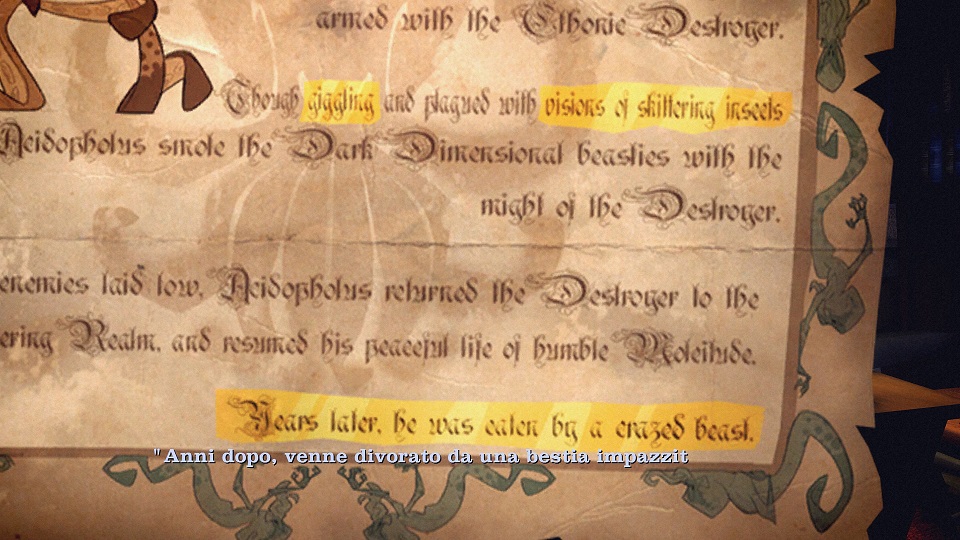 armed with the Cthonic Destroyer.
Though giggling and plagued with visions of skittering insects
Acidopholus smote the Dark Dimensional beasties with the
might of the Destroyer.
enemies laid low, Acidopholus returned the Destroyer to the
ering Realm, and resumed his peaceful life of humble Moleitude.
Years later, he was eaten by a crazed beast.
"Anni dopo, venne divorato da una bestia impazzit